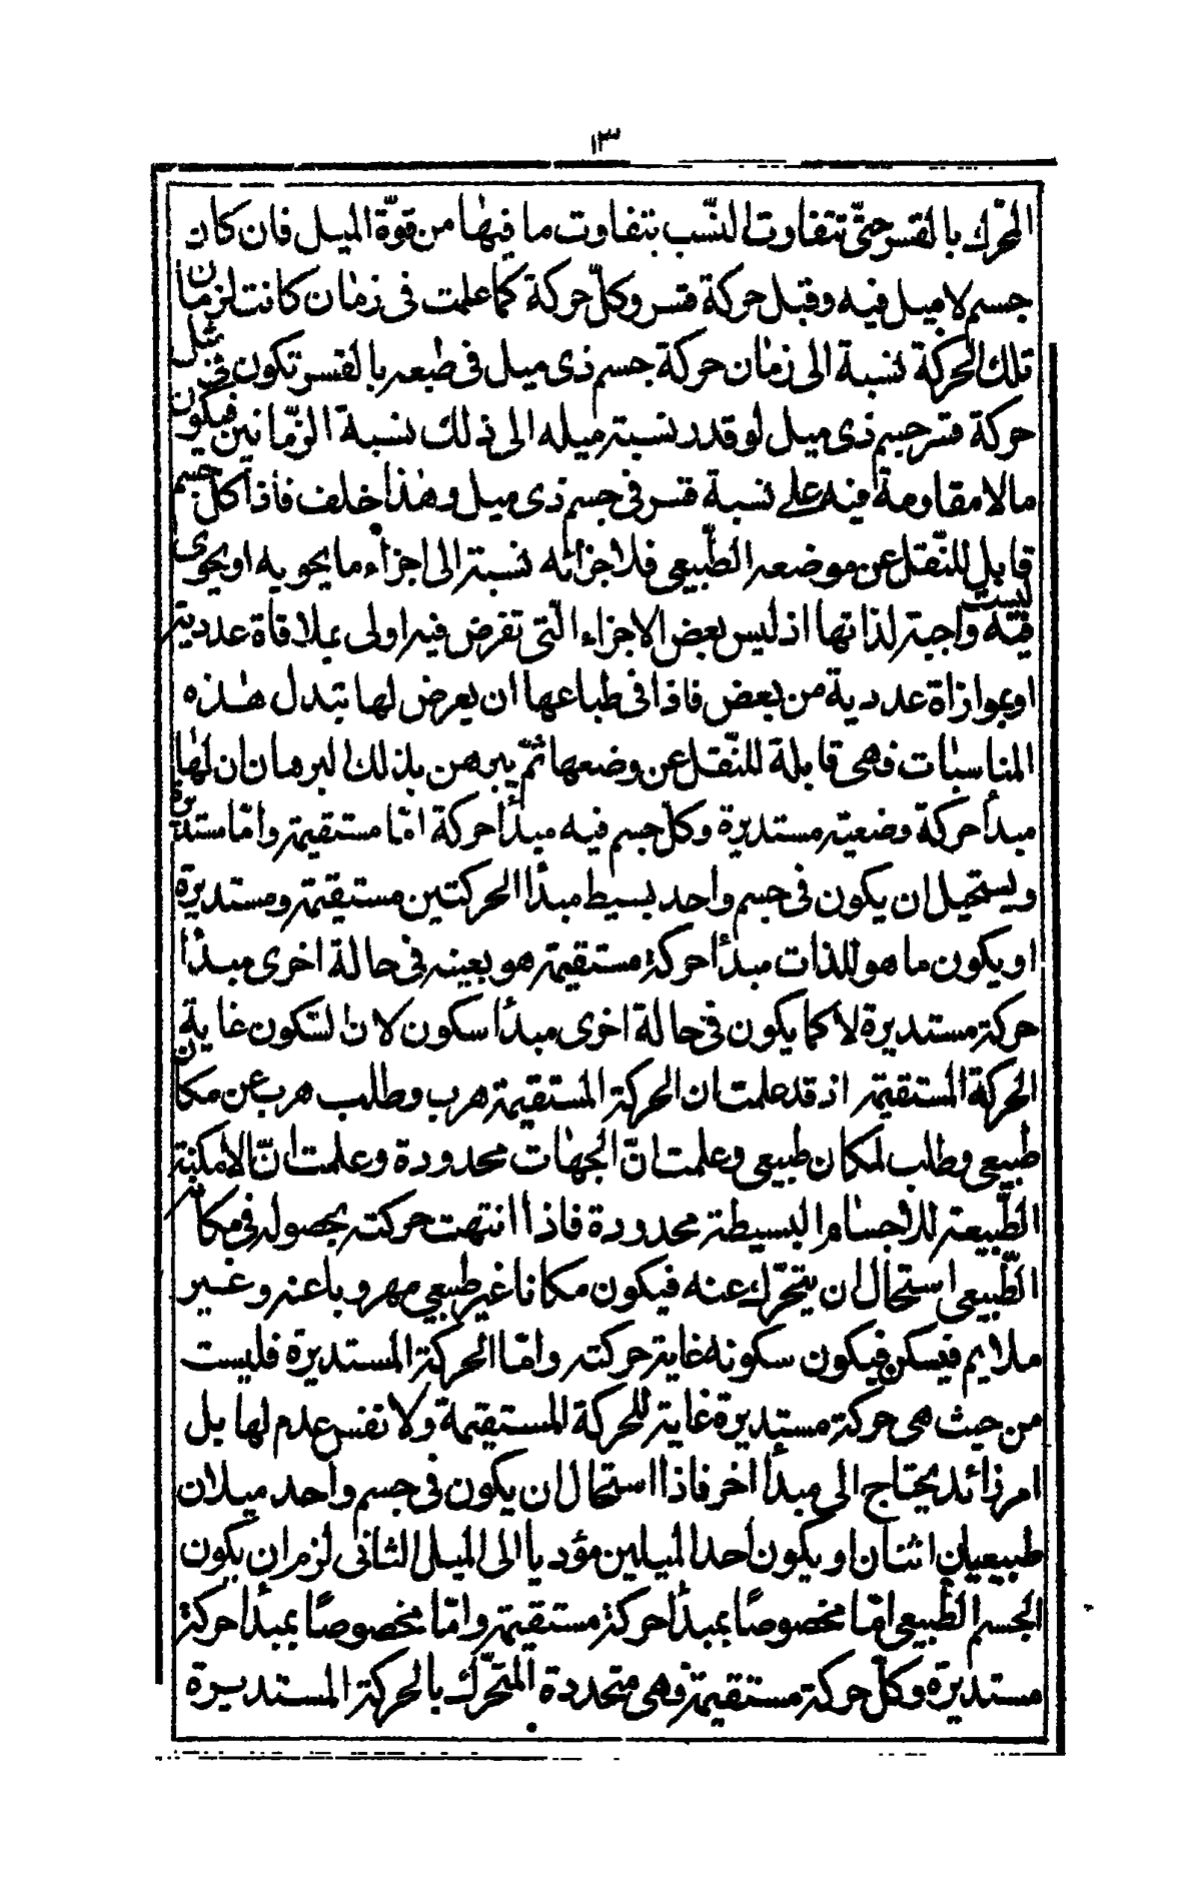 ١٣
المحرك بالقسر حتّى تتفاوت النسّب بتفاوت ما فيها من قوّة الميل فان كان
جسم لا ميل فيه وقبل حركة قسر وكلّ حركة كما علمت فى زمان كانت لزمان
تلك الحركة نسبة الى زمان حركة جسم ذى ميل فى طبعه بالقسر تكون فى مثل
حركة قسر جسم ذى ميل لو قدر نسبة ميله الى ذلك نسبة الزّمانين فيكون
ما لا مقاومة فيه على نسبة قسر فى جسم ذى ميل وهذا خلف فاذا كل جسم
قابل للنّقل عن موضعه الطّبيعى فلاجزائه نسبة الى اجزاء ما يحويه او يحوى
فيه ليست واجبة لذاتها اذ ليس بعض الاجزاء الّتى تفرض فيه اولى بملاقاة عددية
او بموازاة عددية من بعض فاذا فى طباعها ان يعرض لها تبدل هذه
المناسبات فهى قابلة للنّقل عن وضعها ثمّ يبرهن بذلك البرهان ان لها
مبدأ حركة وضعية مستديرة وكلّ جسم فيه مبدأ حركة امّا مستقيمة وامّا مستديرة
ويستحيل ان يكون فى جسم واحد بسيط مبدأ الحركتين مستقيمة ومستديرة
او يكون ما هو للذات مبدأ حركة مستقيمة هو بعينه فى حالة اخرى مبدأ
حركة مستديرة لا كما يكون فى حالة اخرى مبدأ سكون لان السّكون غاية
الحركة المستقيمة اذ قد علمت ان الحركة المستقيمة هرب وطلب هرب عن مكان
طبيعى وطلب لمكان طبيعى وعلمت انّ الجهات محدودة وعلمت انّ الامكنة
الطّبيعة للاجسام البسيطة محدودة فاذا انتهت حركته بحصوله فى مكانه
الطّبيعى استحال ان يتحرّك عنه فيكون مكانا غير طبيعى مهروبا عنه وغير
ملايم فيسكن فيكون سكونه غاية حركته وامّا الحركة المستديرة فليست
من حيث هى حركة مستديرة غاية للحركة المستقيمة ولا نفس عدم لها بل
امر زائد يحتاج الى مبدأ اخر فاذا استحال ان يكون فى جسم واحد ميلان
طبيعيان اثنان او يكون احد الميلين مؤديا الى الميل الثانى لزم ان يكون
الجسم الطّبيعى امّا مخصوصًا بمبدأ حركة مستقيمة وامّا مخصوصًا بمبدأ حركة
مستديرة وكلّ حركة مستقيمة فهى متحددة المتحرّك بالحركة المستديرة